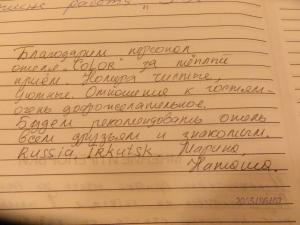 Благодарим персонал
отеля "COLOR" за тёплый
приём. Номера чистые,
уютные. Отношение к гостям-
очень доброжелательное.
Будем рекомендовать отель
всем друзьям и знакомым.
Russia, Irkutsk Марина.
Наташа.